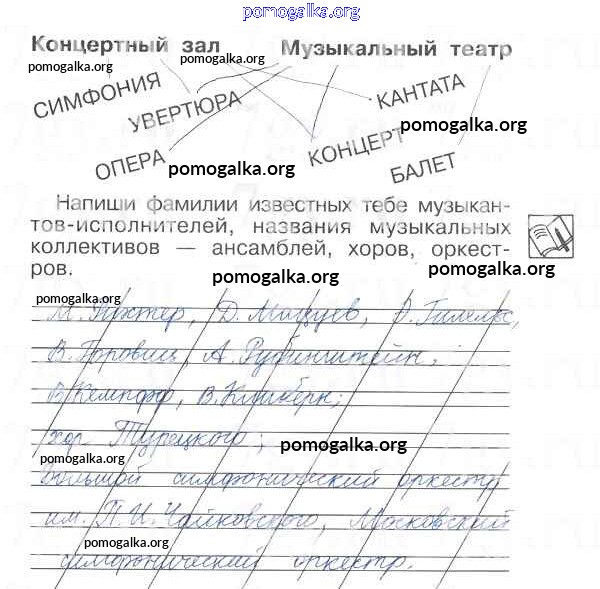 pomogalka.org
Концертный зал Музыкальный театр
pomogalka.org pomogalka.org
СИМФОНИЯ УВЕРТЮРА КАНТАТА
pomogalka.org
ОПЕРА pomogalka.org КОНЦЕРТ БАЛЕТ
Напиши фамилии известных тебе музыкан-
тов-исполнителей, названия музыкальных
коллективов — ансамблей, хоров, оркест-
ров.
pomogalka.org pomogalka.org
pomogalka.org
Рихтер, Д. Мацуев, Э. Гилельс,
pomogalka.org
В. Горовиц, А. Рубинштейн;
В. Кемпфф, В. Клиберн;
хор Турецкого;
pomogalka.org pomogalka.org
Большой симфонический оркестр
им. П. И. Чайковского, Московский
pomogalka.org
симфонический оркестр.